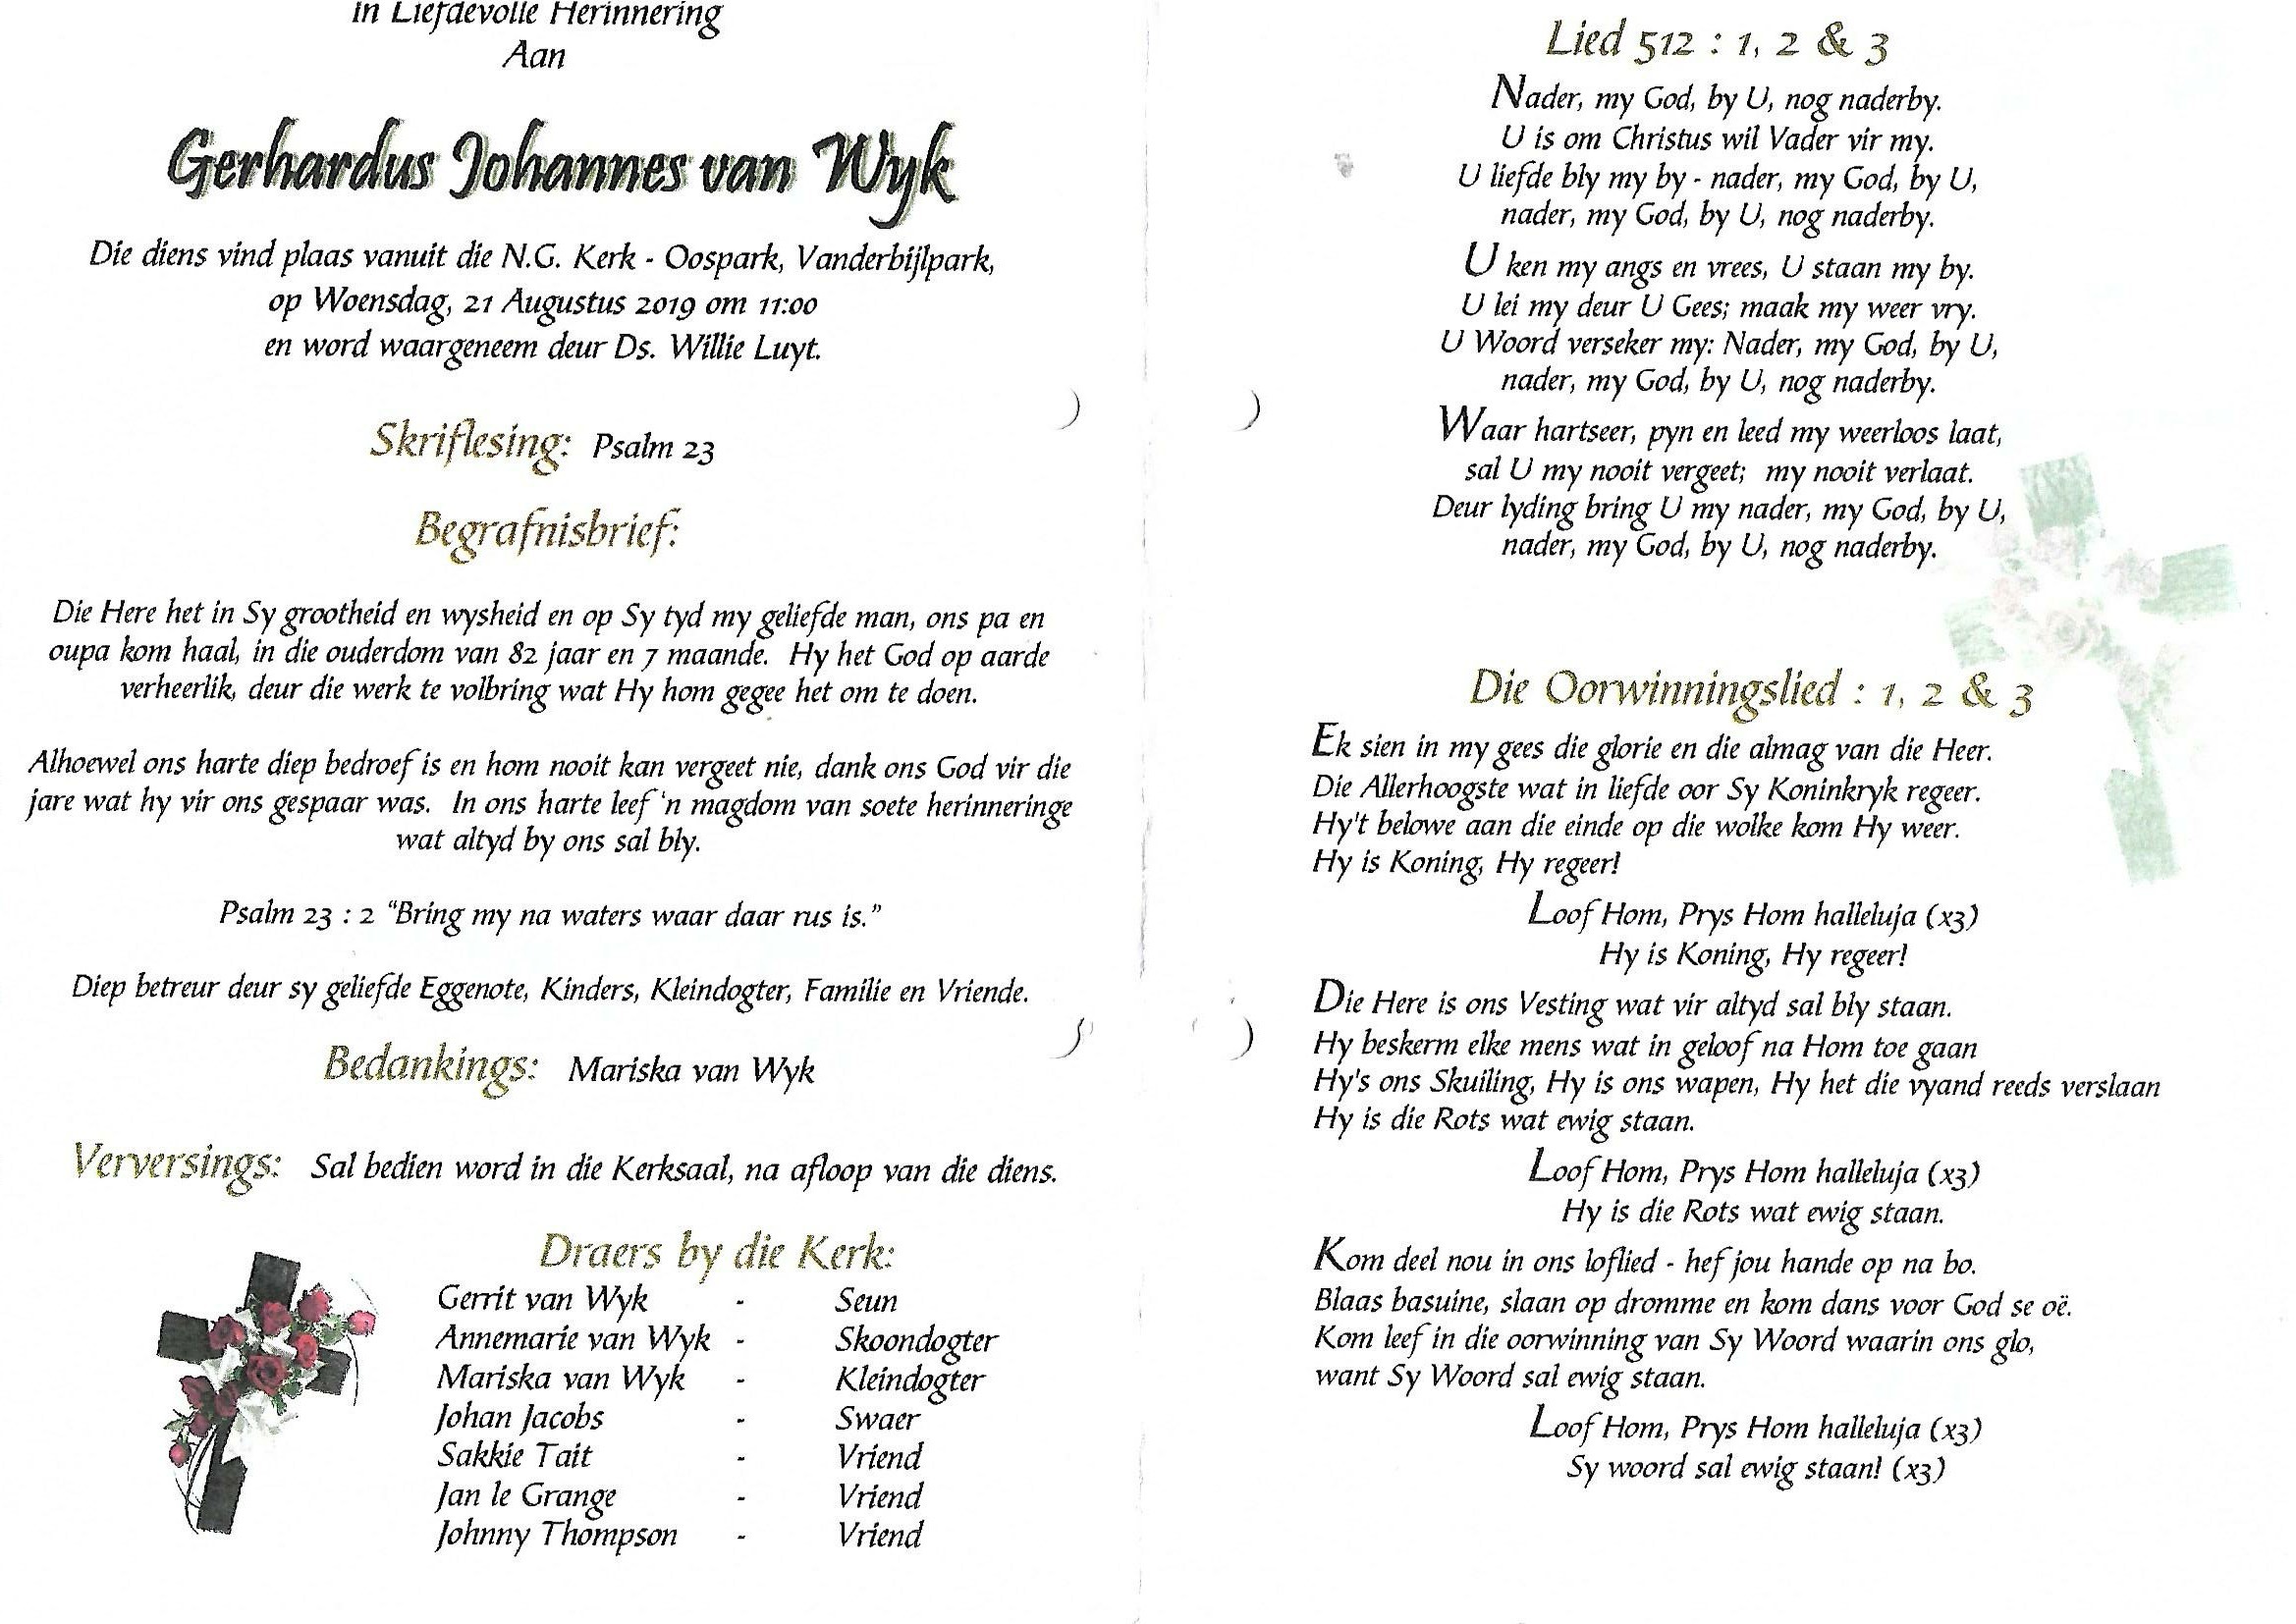 In Liefdevolle Herinnering
Aan
Gerhardus Johannes van Wyk
Die diens vind plaas vanuit die N.G. Kerk - Oospark, Vanderbijlpark,
op Woensdag, 21 Augustus 2019 om 11:00
en word waargeneem deur Ds. Willie Luyt.
Skriflesing: Psalm 23
Begrafnisbrief:
Die Here het in Sy grootheid en wysheid en op Sy tyd my geliefde man, ons pa en
oupa kom haal, in die ouderdom van 82 jaar en 7 maande. Hy het God op aarde
verheerlik, deur die werk te volbring wat Hy hom gegee het om te doen.
Alhoewel ons harte diep bedroef is en hom nooit kan vergeet nie, dank ons God vir die
jare wat hy vir ons gespaar was. In ons harte leef 'n magdom van soete herinneringe
wat altyd by ons sal bly.
Psalm 23 : 2 “Bring my na waters waar daar rus is.”
Diep betreur deur sy geliefde Eggenote, Kinders, Kleindogter, Familie en Vriende.
Bedankings: Mariska van Wyk
Verversings: Sal bedien word in die Kerksaal, na afloop van die diens.
Draers by die Kerk:
Gerrit van Wyk - Seun
Annemarie van Wyk - Skoondogter
Mariska van Wyk - Kleindogter
Johan Jacobs - Swaer
Sakkie Tait - Vriend
Jan le Grange - Vriend
Johnny Thompson - Vriend
Lied 512 : 1, 2 & 3
Nader, my God, by U, nog naderby.
U is om Christus wil Vader vir my.
U liefde bly my by - nader, my God, by U,
nader, my God, by U, nog naderby.
U ken my angs en vrees, U staan my by.
U lei my deur U Gees; maak my weer vry.
U Woord verseker my: Nader, my God, by U,
nader, my God, by U, nog naderby.
Waar hartseer, pyn en leed my weerloos laat,
sal U my nooit vergeet; my nooit verlaat.
Deur lyding bring U my nader, my God, by U,
nader, my God, by U, nog naderby.
Die Oorwinningslied : 1, 2 & 3
Ek sien in my gees die glorie en die almag van die Heer.
Die Allerhoogste wat in liefde oor Sy Koninkryk regeer.
Hy't belowe aan die einde op die wolke kom Hy weer.
Hy is Koning, Hy regeer!
Loof Hom, Prys Hom halleluja (x3)
Hy is Koning, Hy regeer!
Die Here is ons Vesting wat vir altyd sal bly staan.
Hy beskerm elke mens wat in geloof na Hom toe gaan
Hy's ons Skuiling, Hy is ons wapen, Hy het die vyand reeds verslaan
Hy is die Rots wat ewig staan.
Loof Hom, Prys Hom halleluja (x3)
Hy is die Rots wat ewig staan.
Kom deel nou in ons loflied - hef jou hande op na bo.
Blaas basuine, slaan op dromme en kom dans voor God se oë.
Kom leef in die oorwinning van Sy Woord waarin ons glo,
want Sy Woord sal ewig staan.
Loof Hom, Prys Hom halleluja (x3)
Sy woord sal ewig staan! (x3)